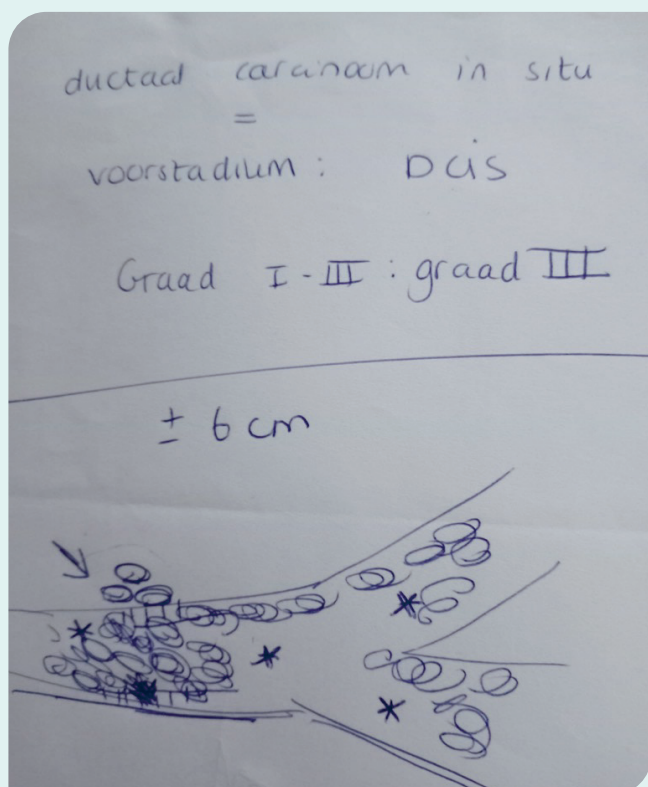 ductaal carcinoom in situ
=
voorstadium: DCIS
Graad I-III: graad III
± 6 cm